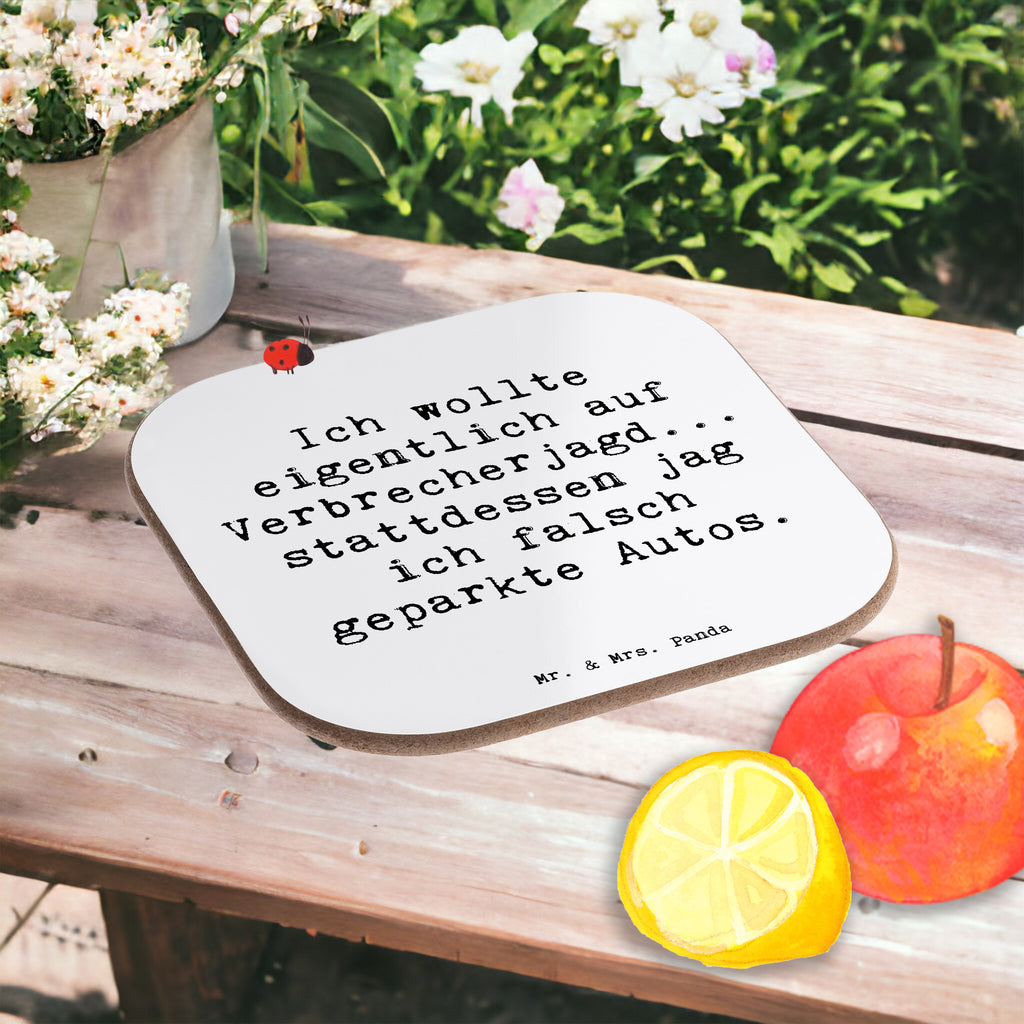 Ich wollte
eigentlich auf
Verbrecherjagd...
stattdessen jag
ich falsch
geparkte Autos.
Mr. & Mrs. Panda